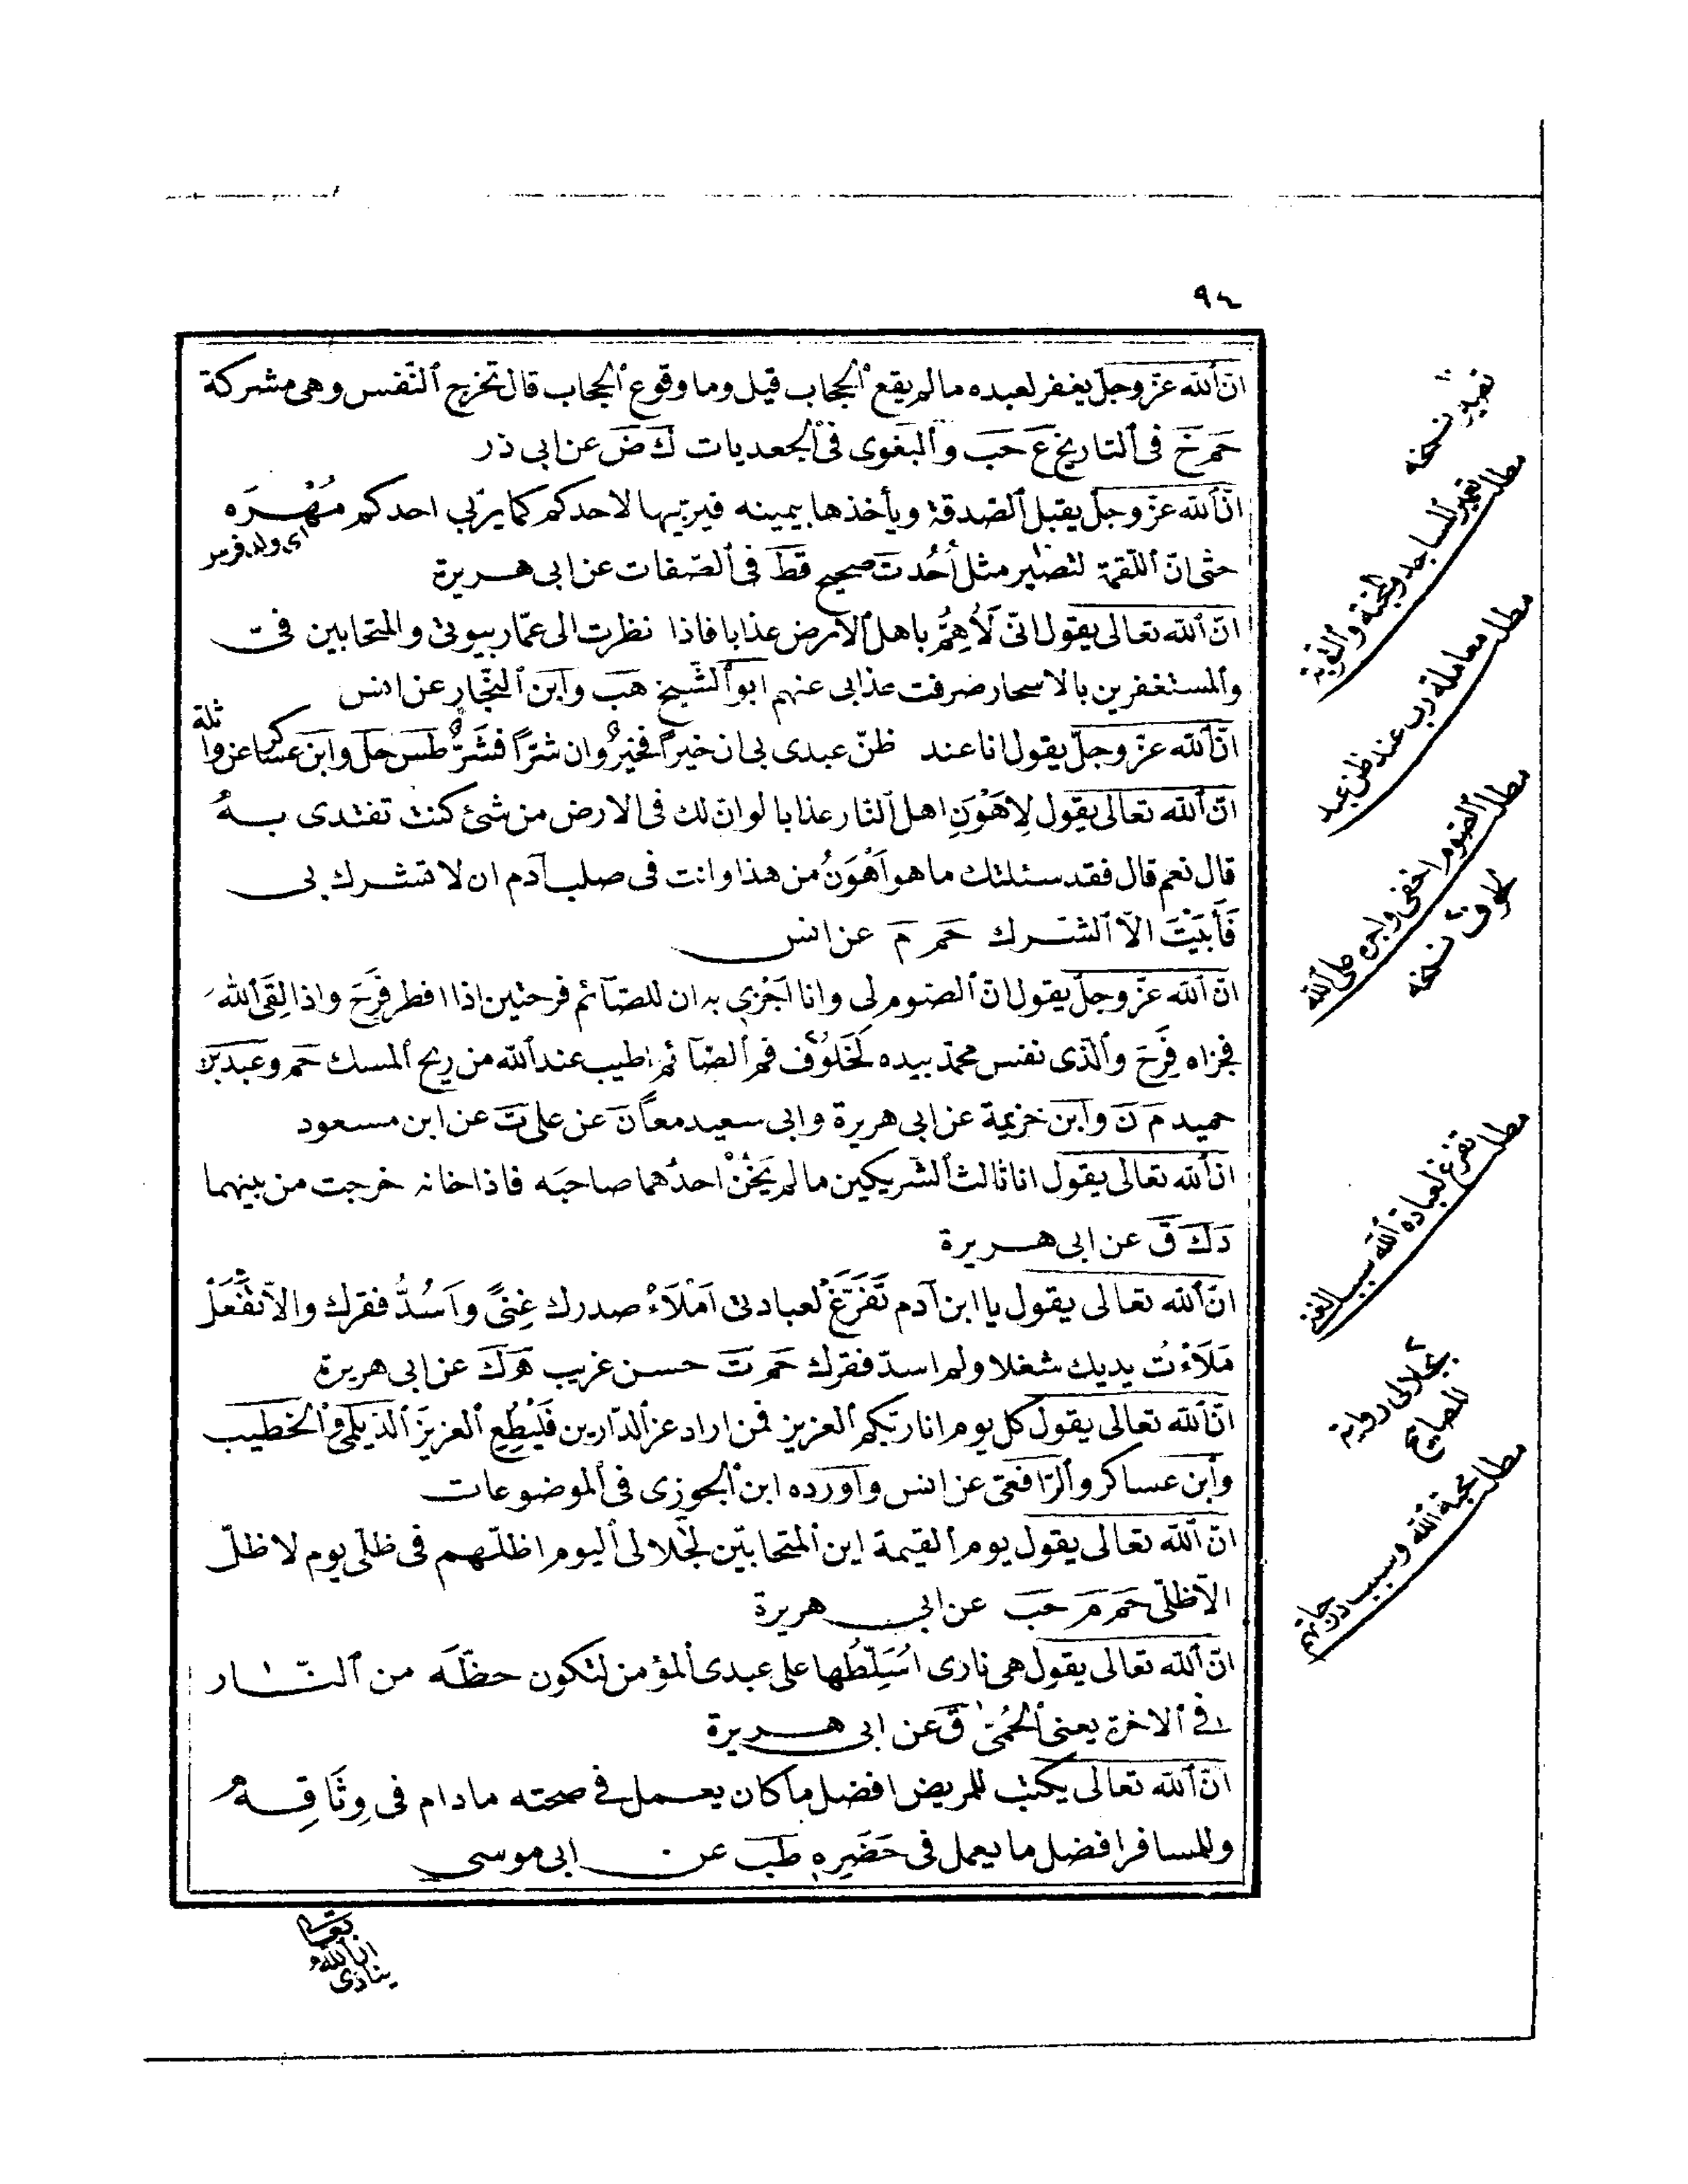 ٩٤
انّ ٱلله عزّ وجلّ يغفر لعبده مالم يقع ٱلحجاب قيل وما وقوع ٱلحجاب قال تخرج ٱلنّفس وهى مشركة
حَم خَ فى ٱلتاريخ عَ حَبَ وٱلبغوى فى ٱلجعديات كَ ضَ عن ابى ذر
انّ ٱلله عزّ وجلّ يقبل ٱلصّدقة ويأخذها بيمينه فيربّيها لاحدكم كما يربّي احدكم مُهْرَه
اى ولد فرس
حتى انّ ٱللّقمة لتصير مثل أُحُد تَ صحيح قَطَ فى ٱلصّفات عن ابى هريرة
انّ ٱلله تعالى يقول انّى لَأَهِمُّ باهل ٱلارض عذابا فاذا نظرت الى عمّار بيوتى والمتحابين فىّ
وٱلمستغفرين بالاسحار صرفت عذابى عنهم ابو ٱلشّيخ هَبَ وٱبن ٱلنجّار عن انس
انّ ٱلله عزّ وجلّ يقول انا عند ظنّ عبدى بى ان خيراً فخيرٌ وان شرّاً فشَرٌّ طَس حَل وٱبن عساكر عن واثلة
انّ ٱلله تعالى يقول لِاَهْوَنِ اهل ٱلنّار عذابا لو انّ لك فى الارض من شئ كنت تفتدى به
قال نعم قال فقد سئلتك ما هو اَهْوَنُ من هذا وانت فى صلب آدم ان لا تشرك بى
فَأَبَيْتَ الّا ٱلشرك حَم مَ عن انس
انّ ٱلله عزّ وجلّ يقول انّ ٱلصّوم لى وانا اَجْزِى به ان للصّآئم فرحتين اذا افطر فَرِحَ واذا لَقِىَ ٱللهَ
فجزاه فَرِحَ وٱلّذى نفس محمّد بيده لَخَلُوْفُ فم ٱلصّآئم اطيب عند ٱلله من ريح ٱلمسك حَم وعَبد بن
حميد مَ نَ وٱبن خزيمة عن ابى هريرة وابى سعيد معاً نَ عن على تَ عن ابن مسعود
انّ ٱلله تعالى يقول انا ثالث ٱلشّريكين مالم يَخُنْ احدُهما صاحبَه فاذا خانه خرجت من بينهما
دَ كَ قَ عن ابى هريرة
انّ ٱلله تعالى يقول يا ابن آدم تَفَرَّغْ لعبادتى اَمْلَاءْ صدرك غِنىً واَسُدُّ فقرك والّا تَفْعَلْ
مَلَاءْتُ يديك شغلا ولم اسدّ فقرك حَم تَ حسن غريب هَ كَ عن ابى هريرة
انّ ٱلله تعالى يقول كل يوم انا ربّكم ٱلعزيز فمن اراد عز ٱلدّارين فَلْيُطِعِ ٱلعزيزَ ٱلدّيلمى وٱلخطيب
وٱبن عساكر وٱلرّافعى عن انس وٱورده ابن ٱلجوزى فى ٱلموضوعات
انّ ٱلله تعالى يقول يوم ٱلقيمة اين ٱلمتحابّين لجلالى ٱليوم اظلّهم فى ظلّى يوم لا ظلّ
الّا ظلّى حَم مَ حَبَ عن ابى هريرة
انّ ٱلله تعالى يقول هى نارى اُسَلِّطُها على عبدى ٱلمؤمن لتكون حظّه من ٱلنّار
فى ٱلاخرة يعنى ٱلحُمّىٰ قَ عن ابى هريرة
انّ ٱلله تعالى يكتب للمريض افضل ما كان يعمل فى صحته مادام فى وِثَاقِه
وللمسافر افضل ما يعمل فى حَضَرِه طَبَ عن ابى موسى
نسخه
مطلب تعمير ٱلمساجد والمحبة وٱلتوبة
مطلب معاملة رب عند ظن عبد
مطلب ٱلصوم اخفى واجره على ٱلله
نسخه
مطلب تفرغ لعبادة ٱلله سبب الغنى
بجلالى رواية
للمصابيح
مطلب محبة ٱلله وسبب درجاتهم
ان ٱلله
ينادى